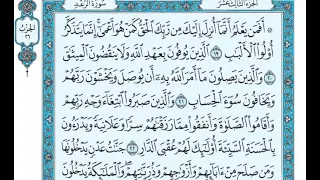 الجزء الثالث عشر سورة الرعد
۞ أَفَمَن يَعْلَمُ أَنَّمَا أُنزِلَ إِلَيْكَ مِن رَّبِّكَ الْحَقُّ كَمَنْ هُوَ أَعْمَىٰ إِنَّمَا يَتَذَكَّرُ
أُولُوا الْأَلْبَابِ ١٩ الَّذِينَ يُوفُونَ بِعَهْدِ اللَّهِ وَلَا يَنقُضُونَ الْمِيثَاقَ
٢٠ وَالَّذِينَ يَصِلُونَ مَا أَمَرَ اللَّهُ بِهِ أَن يُوصَلَ وَيَخْشَوْنَ رَبَّهُمْ
وَيَخَافُونَ سُوءَ الْحِسَابِ ٢١ وَالَّذِينَ صَبَرُوا ابْتِغَاءَ وَجْهِ رَبِّهِمْ
وَأَقَامُوا الصَّلَاةَ وَأَنفَقُوا مِمَّا رَزَقْنَاهُمْ سِرًّا وَعَلَانِيَةً وَيَدْرَءُونَ
بِالْحَسَنَةِ السَّيِّئَةَ أُولَٰئِكَ لَهُمْ عُقْبَى الدَّارِ ٢٢ جَنَّاتُ عَدْنٍ يَدْخُلُونَهَا
وَمَن صَلَحَ مِنْ آبَائِهِمْ وَأَزْوَاجِهِمْ وَذُرِّيَّاتِهِمْ وَالْمَلَائِكَةُ يَدْخُلُونَ
الحزب
٢٦